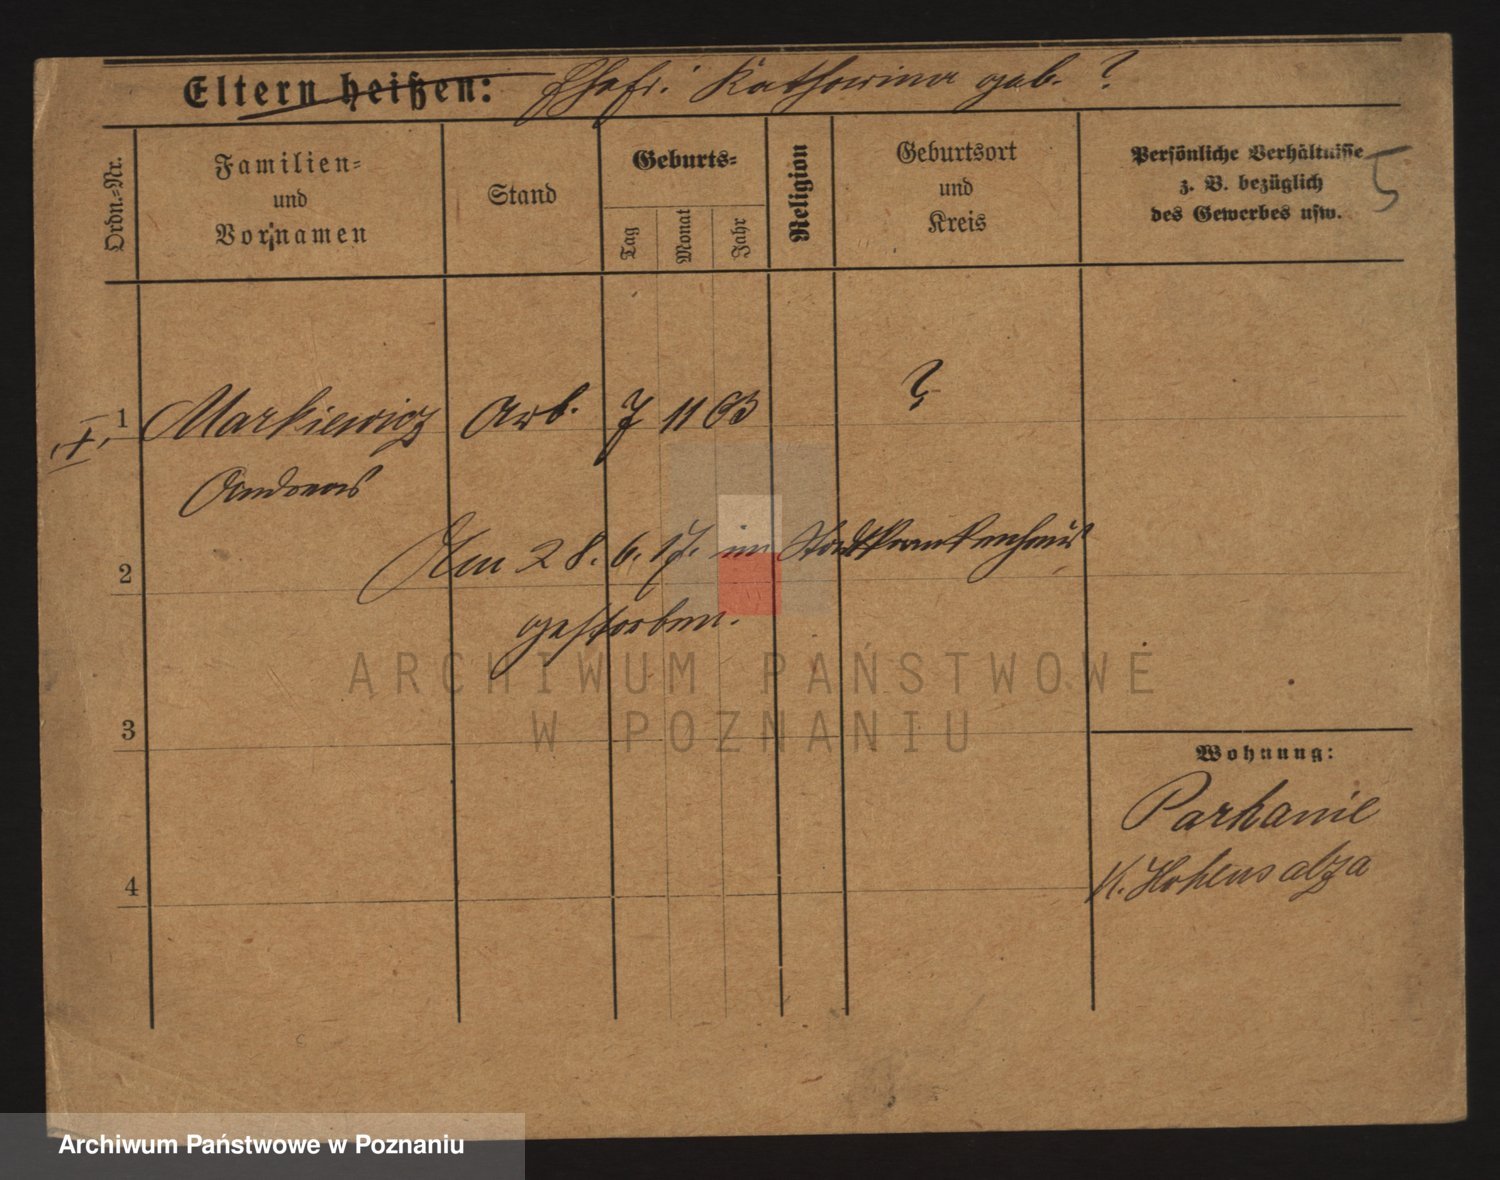 Eltern heißen: Ehefr: Katharina geb. ?
Ordn.-Nr.
Familien-
und
Vornamen
Stand
Geburts-
Tag
Monat
Jahr
Religion
Geburtsort
und
Kreis
Persönliche Verhältnisse
z. B. bezüglich
des Gewerbes usw.
5
1 Markiewicz Arb. 7 11 63 ?
Andreas
2 Am 28. 6. 17. im Stadtkrankenhaus
gestorben.
ARCHIWUM PAŃSTWOWE
W POZNANIU
3
Wohnung:
Parkanie
4 K. Hohensalza
Archiwum Państwowe w Poznaniu